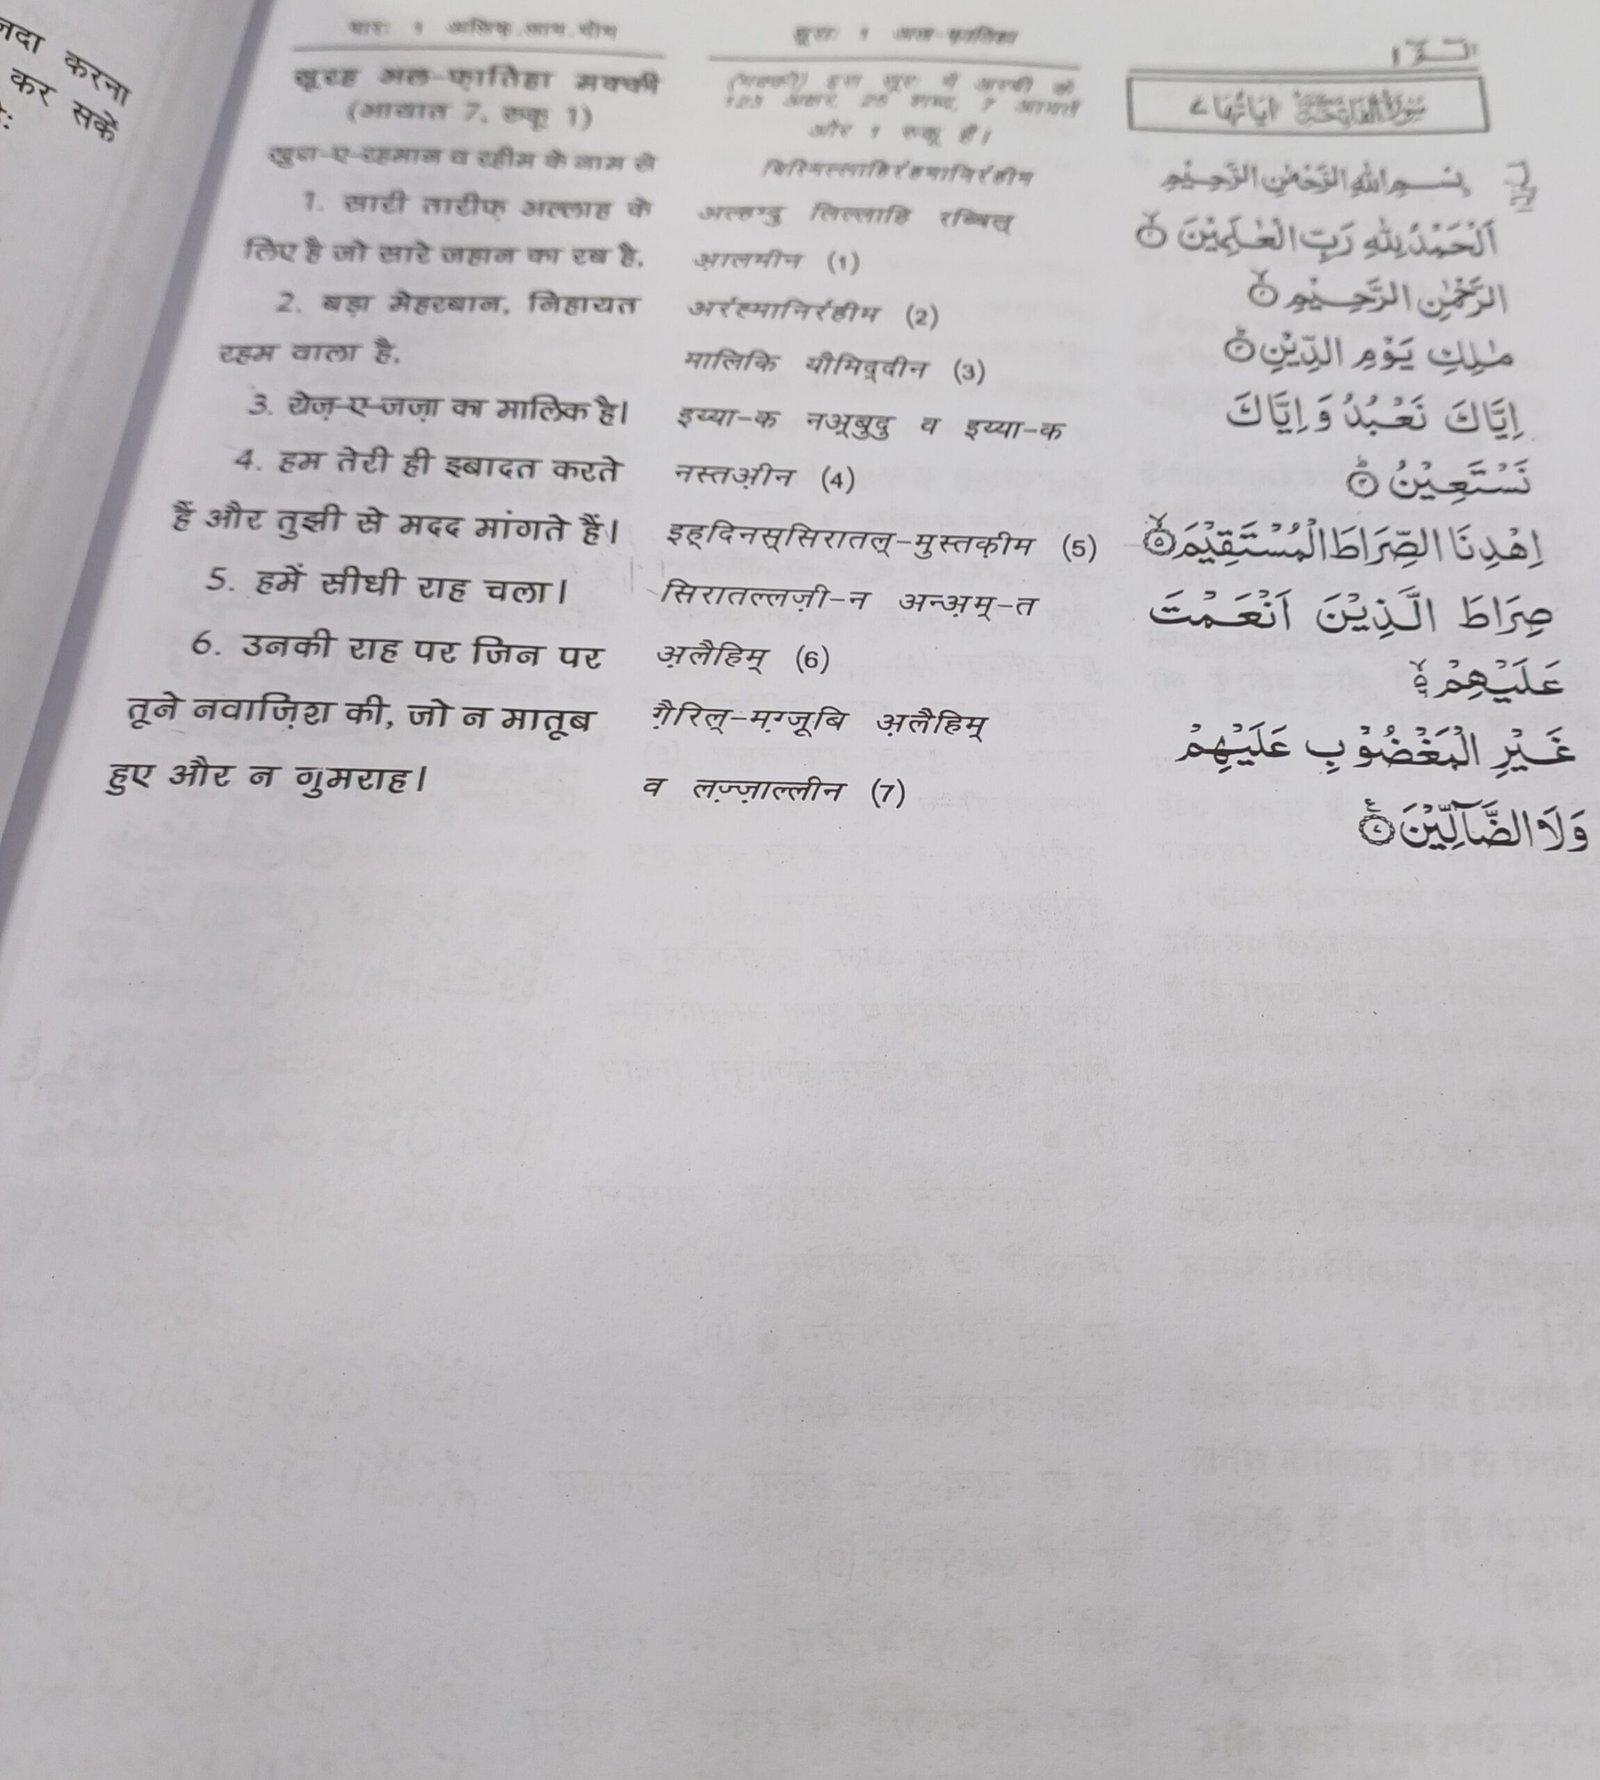 जदा करना
कर सकें
पारः 1 अलिफ़.लाम.मीम
सूरह अल-फ़ातिहा मक्की
(आयात 7, रुकू 1)
खुदा-ए-रहमान व रहीम के नाम से
1. सारी तारीफ़ अल्लाह के
लिए है जो सारे जहान का रब है.
2. बड़ा मेहरबान, निहायत
रहम वाला है.
3. रोज़-ए-जज़ा का मालिक है।
4. हम तेरी ही इबादत करते
हैं और तुझी से मदद मांगते हैं।
5. हमें सीधी राह चला।
6. उनकी राह पर जिन पर
तूने नवाज़िश की, जो न मातूब
हुए और न गुमराह।
सूरः 1 अल-फ़ातिहा
(मक्की) इस सूरः में अरबी के
123 अक्षर, 25 शब्द, 7 आयतें
और 1 रुकू है।
बिस्मिल्लाहिर्रहमानिर्रहीम
अल्हम्दु लिल्लाहि रब्बिल्
आ़लमीन (1)
अर्रह्मानिर्रहीम (2)
मालिकि यौमिद्दीन (3)
इय्या-क नअ़्बुदु व इय्या-क
नस्तअ़ीन (4)
इह्दिनस्सिरातल्-मुस्तक़ीम (5)
सिरातल्लज़ी-न अन्अ़म्-त
अ़लैहिम् (6)
ग़ैरिल्-मग़्जूबि अ़लैहिम्
व लज़्ज़ाल्लीन (7)
الٓمّٓ ١
سُوْرَةُ الْفَاتِحَةِ اٰيَاتُهَا ٧
بِسْمِ اللّٰهِ الرَّحْمٰنِ الرَّحِيْمِ
اَلْحَمْدُ لِلّٰهِ رَبِّ الْعٰلَمِيْنَ ۙ ١
الرَّحْمٰنِ الرَّحِيْمِ ۙ ٢
مٰلِكِ يَوْمِ الدِّيْنِ ؕ ٣
اِيَّاكَ نَعْبُدُ وَ اِيَّاكَ
نَسْتَعِيْنُ ؕ ٤
اِهْدِنَا الصِّرَاطَ الْمُسْتَقِيْمَ ۙ ٥
صِرَاطَ الَّذِيْنَ اَنْعَمْتَ
عَلَيْهِمْ ۙ۬
غَيْرِ الْمَغْضُوْبِ عَلَيْهِمْ
وَلَا الضَّآلِّيْنَ ࣖ ٧